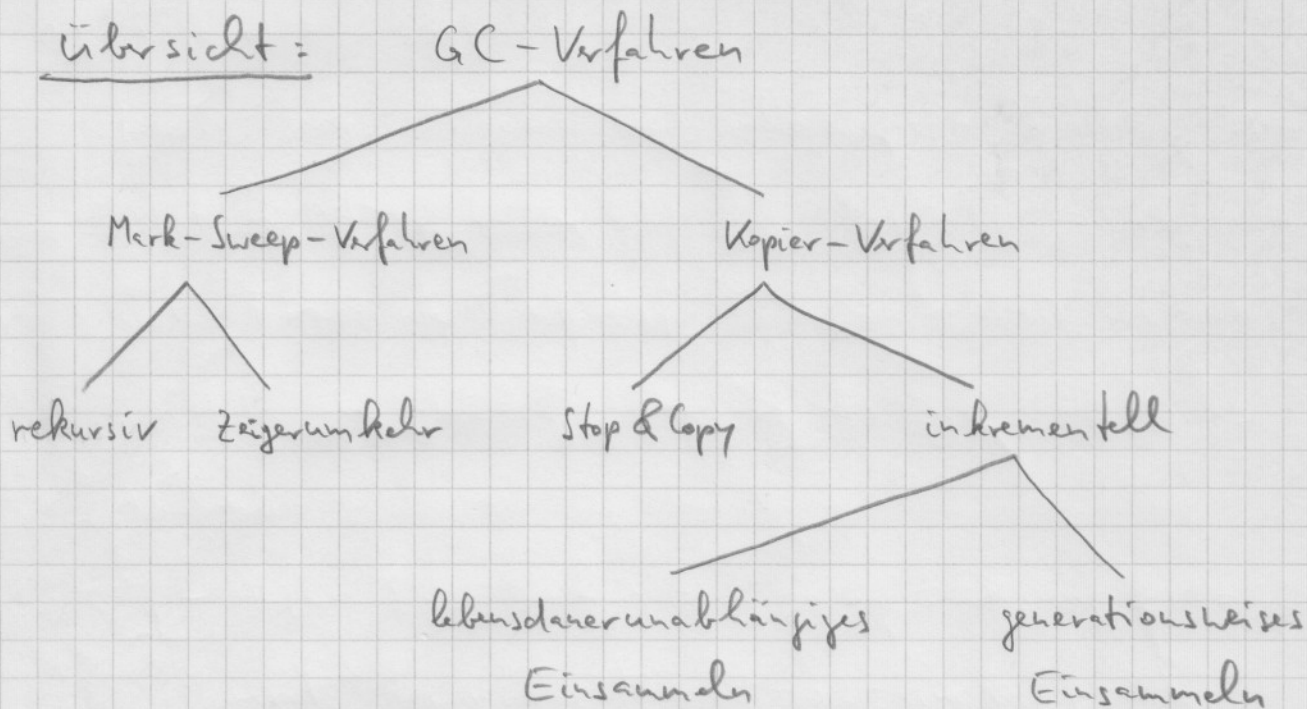 Übersicht: GC-Verfahren
Mark-Sweep-Verfahren Kopier-Verfahren
rekursiv Zeigerumkehr Stop & Copy inkrementell
lebensdauerunabhängiges generationsweises
Einsammeln Einsammeln